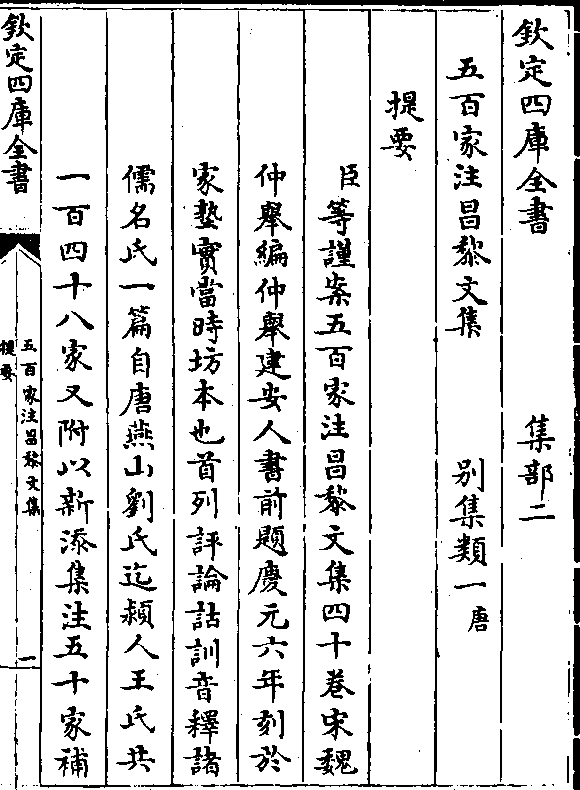 欽定四庫全書　集部二
五百家注昌黎文集　別集類一唐
提要
臣等謹案五百家注昌黎文集四十卷宋魏
仲舉編仲舉建安人書前題慶元六年刻於
家塾實當時坊本也首列評論詁訓音釋諸
儒名氏一篇自唐燕山劉氏迄潁人王氏共
一百四十八家又附以新添集注五十家補
欽定四庫全書
五百家注昌黎文集
提要
一